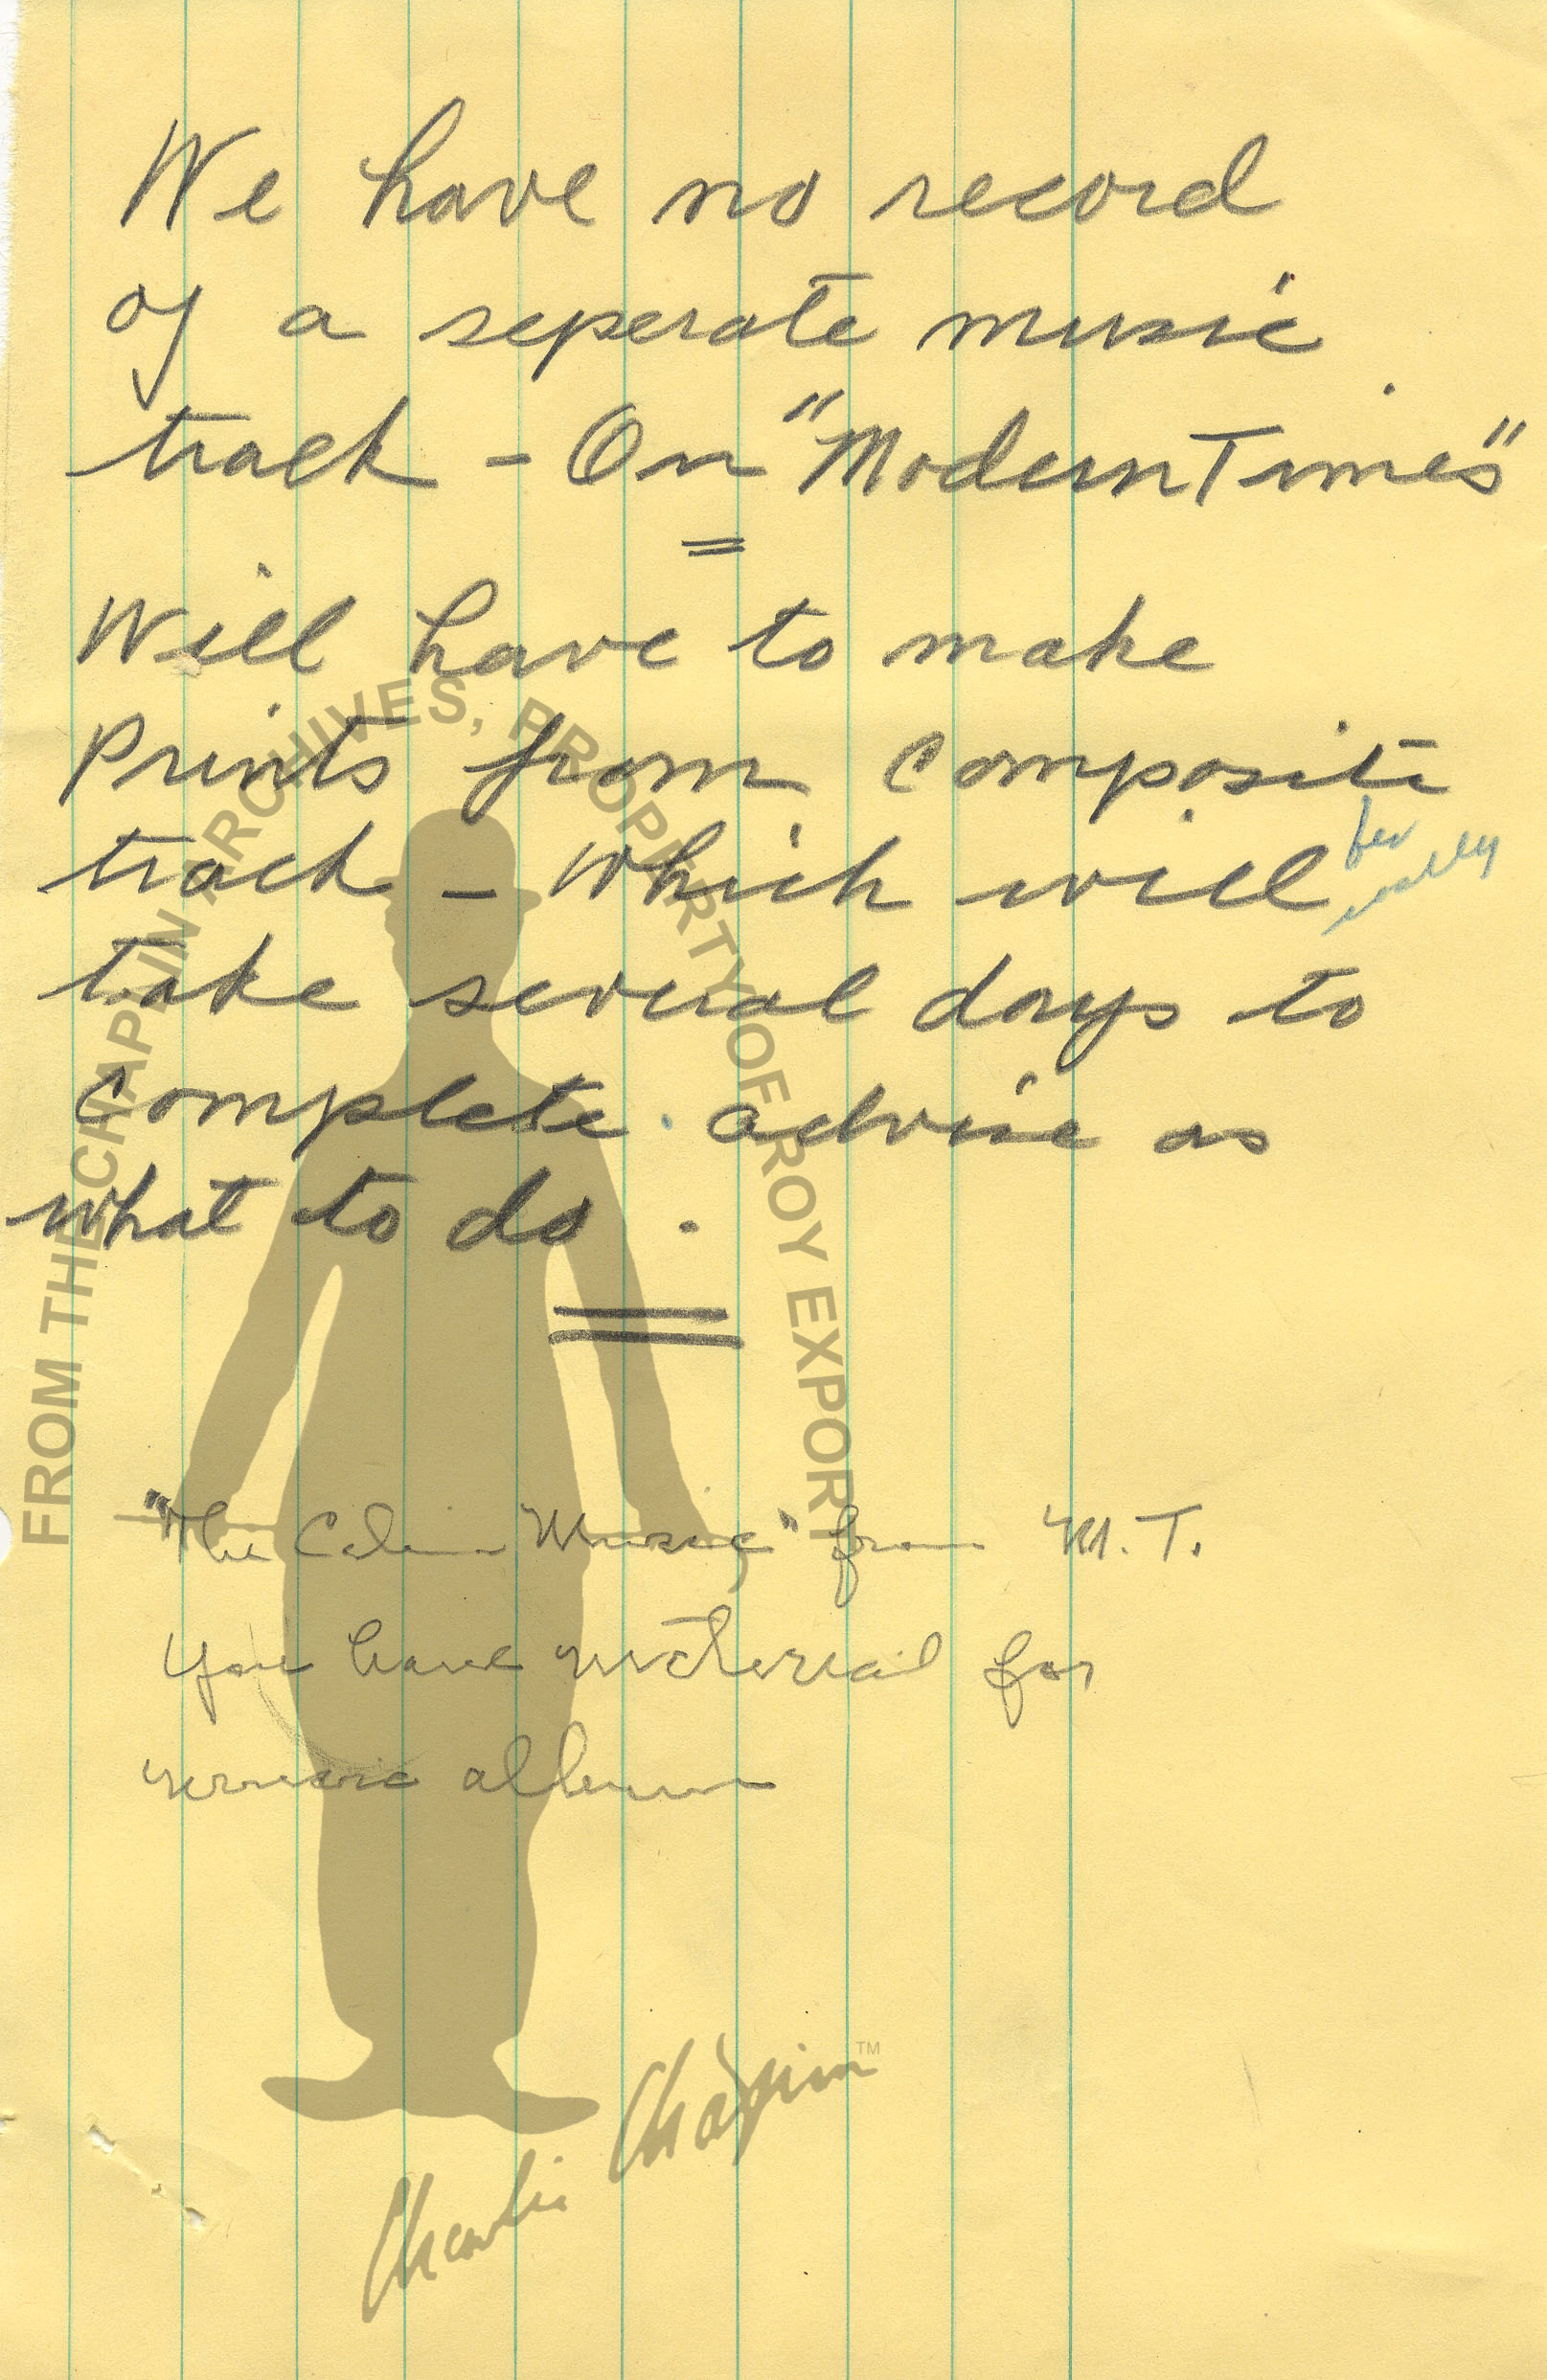 We have no record
of a seperate music
track - On "Modern Times"
Will have to make
Prints from Composite
track - which will
take several days to
Complete. advise as
what to do.
"The Music" from M.T.
You have material for
music album
FROM THE CHAPLIN ARCHIVES, PROPERTY OF ROY EXPORT
Charlie Chaplin™